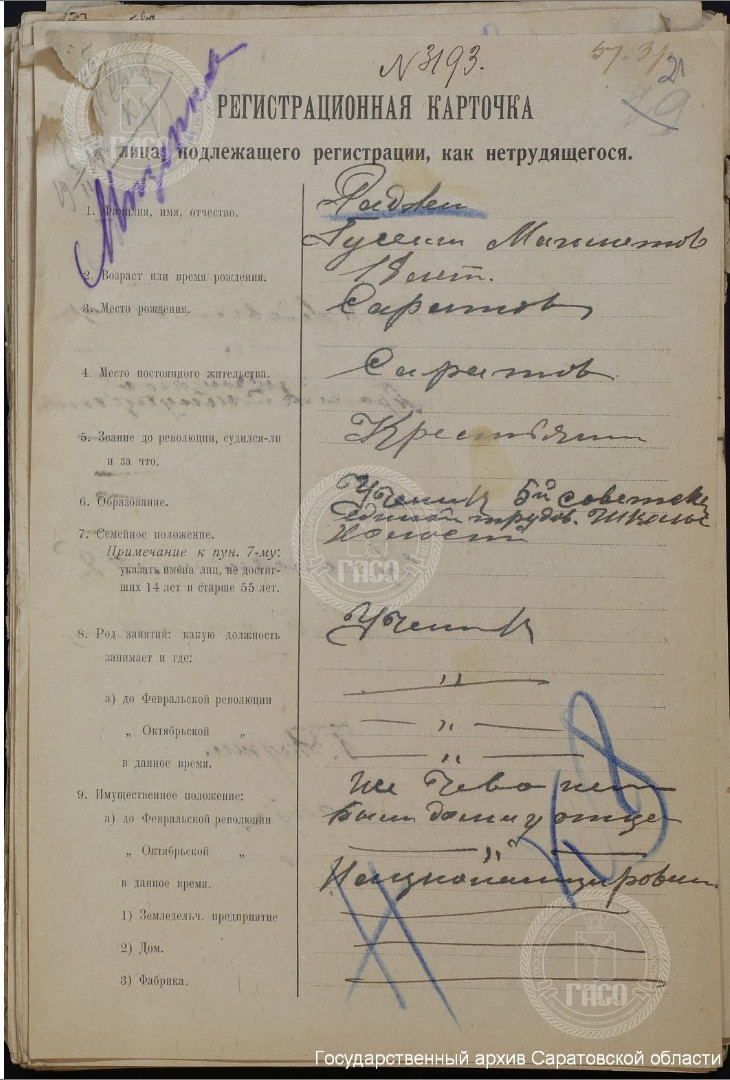 N 3193.
57.31
21
19
РЕГИСТРАЦИОННАЯ КАРТОЧКА
лица, подлежащего регистрации, как нетрудящегося.
1. Фамилия, имя, отчество.
Гусеин
2. Возраст или время рождения.
18 лет.
3. Место рождения.
Саратов
4. Место постоянного жительства.
Саратов
5. Звание до революции, судился-ли
и за что.
Крестьянин
6. Образование.
Ученик 5й советск
единой трудов. школы
7. Семейное положение.
Холост
Примечание к пун. 7-му:
указать имена лиц, не достиг-
ших 14 лет и старше 55 лет.
8. Род занятий: какую должность
занимает и где:
Ученик
а) до Февральской революции
— „ —
„ Октябрьской „
— „ —
в данное время.
— „ —
9. Имущественное положение:
нет
а) до Февральской революции
был дом у отца
„ Октябрьской „
— „ —
в данное время.
Национализирован
1) Земледельч. предприятие
2) Дом.
3) Фабрика.
ГАСО
ГАСО
ГАСО
Государственный архив Саратовской области